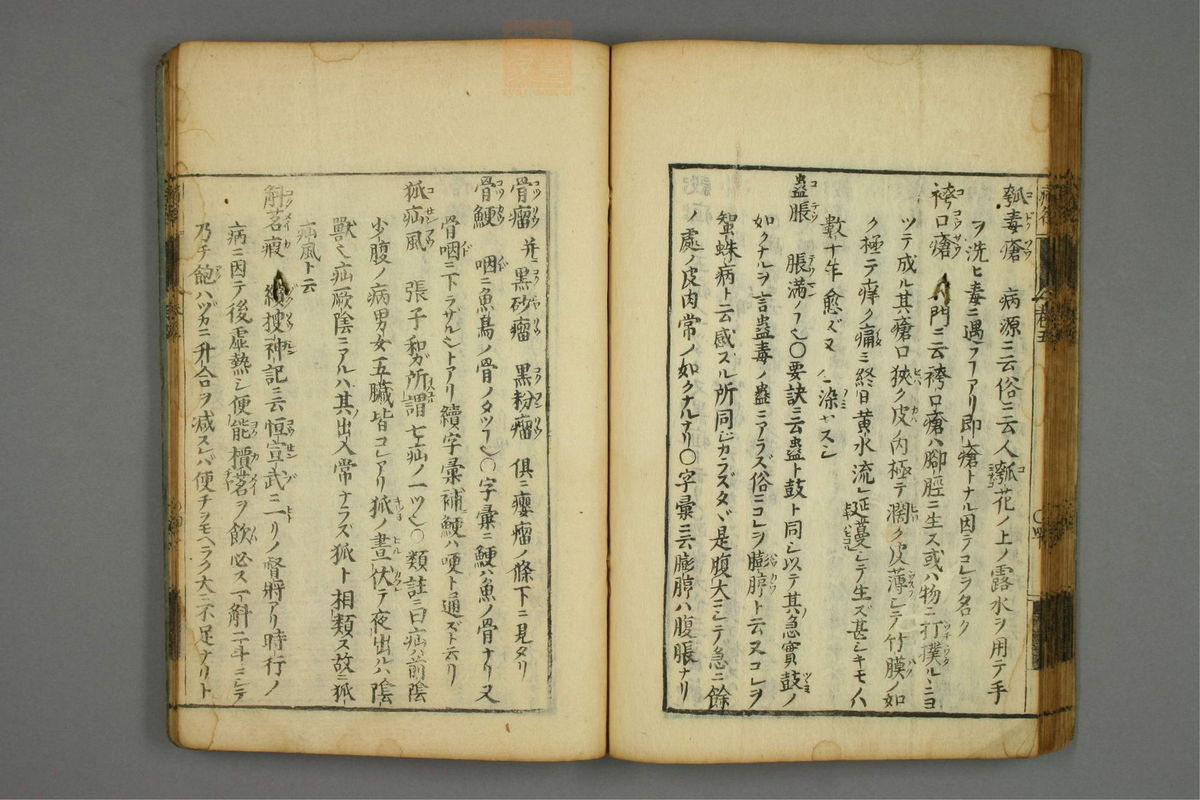 瓠毒瘡 病源ニ云俗ニ云人瓠花ノ上ノ露水ヲ用テ手
ヲ洗ヒ毒ニ遇フコアリ即瘡トナル因テコレヲ名ク
袴口瘡 門ニ云袴口瘡ハ脚脛ニ生ス或ハ物ニ打撲ルヽニヨ
ツテ成ル其瘡口狹ク皮内極テ濶ク皮薄シテ竹膜ノ如
ク極テ痒ク痛ミ終日黄水流レ延蔓シテ生ズ甚シキモノハ
數十年愈ズ又 染ヤスシ
蠱脹 脹滿 ○要訣ニ云蠱ト鼓ト同シ以テ其急實鼓ノ
如クナルヲ言蠱毒ノ蠱ニアラズ俗ニコレヲ膨脝ト云又コレヲ
蜘蛛病ト云感ズル所同ジカラズタヾ是腹大ニシテ急ニ餘
ノ處ノ皮肉常ノ如クナルナリ○字彙ニ云膨脝ハ腹脹ナリ
骨瘤 并ニ黒砂瘤 黒粉瘤 倶ニ癭瘤ノ條下ニ見タリ
骨鯁 咽ニ魚鳥ノ骨ノタツ ○字彙ニ鯁ハ魚ノ骨ナリ又
骨咽ニ下ラザル トアリ續字彙補鯁ハ哽ト通ズト云リ
狐疝風 張子和ガ所謂七疝ノ一ツ ○類註ニ曰疝ハ前陰
少腹ノ病男女五臟皆コレアリ狐ノ晝伏テ夜出ルハ陰
獸 疝厥陰ニアルハ其出入常ナラズ狐ト相類ス故ニ狐
疝風ト云
斛茗瘕 續搜神記ニ云恒宣武ニ一リノ督將アリ時行ノ
病ニ因テ後虚熱シ便能檟茗ヲ飲必ス一斛二斗ニシテ
乃チ飽ハヅカニ升合ヲ減スレバ便チヲモヘラク大ニ不足ナリト